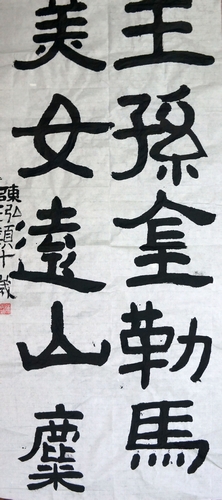 王孫金勒馬
美女遠山麋
陳泓 十歲